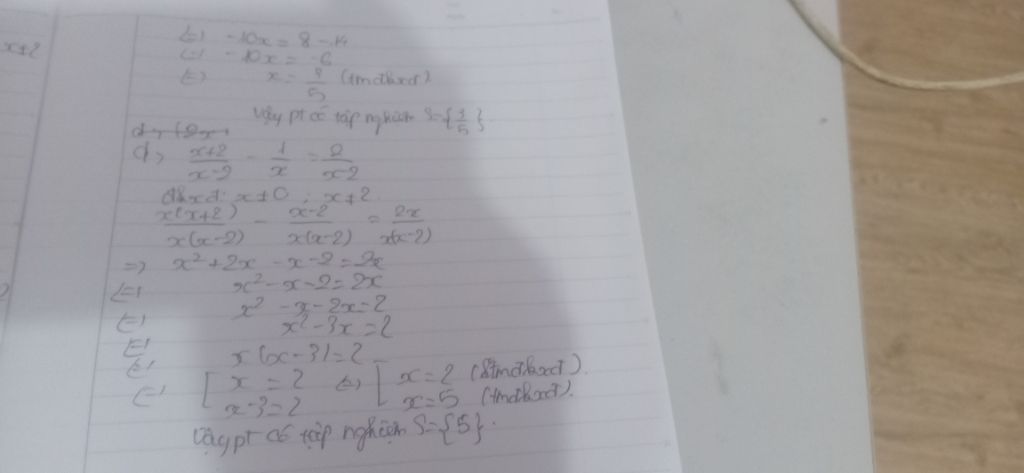 x+2
(=) -10x = 8-14
(=) -10x = -6
(=) x = 3/5 (tmđkxđ)
Vậy pt có tập nghiệm S={3/5}.
d, (2x,
d, x+2/x-2 - 1/x = 2/x-2
đkxđ: x≠0; x≠2.
x(x+2)/x(x-2) - x-2/x(x-2) = 2x/x(x-2)
=> x²+2x -x-2=2x
(=) x²-x-2=2x
(=) x²-x-2x=2
(=) x²-3x=2
(=) x(x-3)=2
(=) [x=2 (=) [x=2 (ktmđkxđ).
x-3=2 x=5 (tmđkxđ).
Vậy pt có tập nghiệm S={5}.